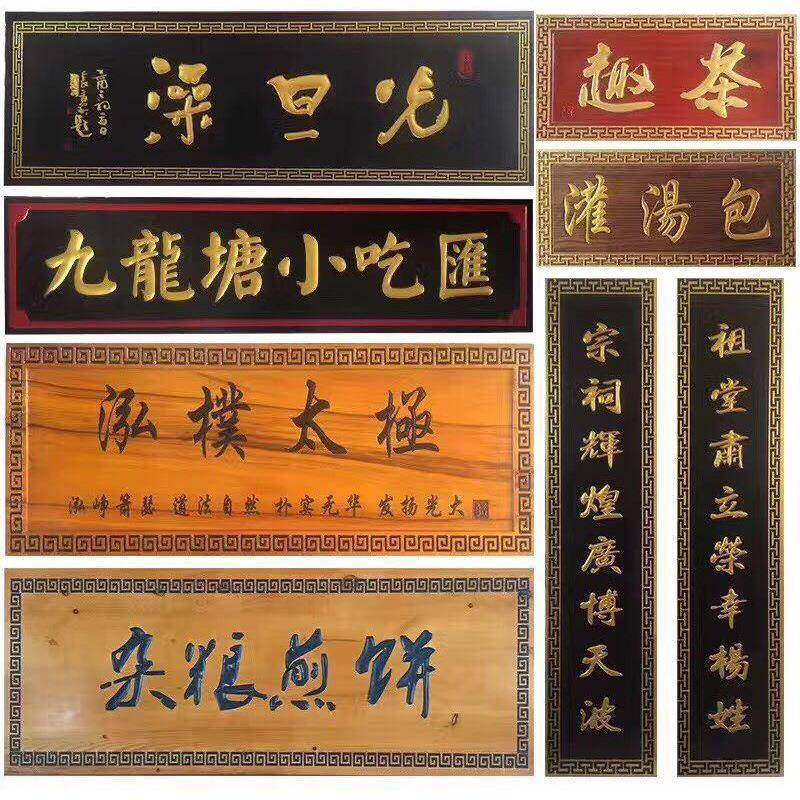 澡旦光
趣茶
灌湯包
九龍塘小吃匯
泓樸太極
泓峥箫瑟 道法自然 朴实无华 发扬光大
杂粮煎饼
祖堂肅立榮幸楊姓
宗祠輝煌廣博天波